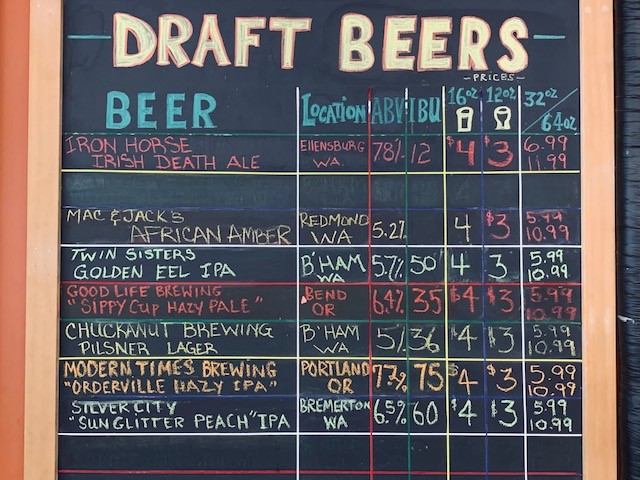 DRAFT BEERS
-PRICES-
BEER LOCATION ABV IBU 16oz 12oz 32oz / 64oz
IRON HORSE
IRISH DEATH ALE ELLENSBURG WA. 7.8% 12 $4 $3 6.99 11.99
MAC & JACK'S
AFRICAN AMBER REDMOND WA 5.2% 4 $3 5.99 10.99
TWIN SISTERS
GOLDEN EEL IPA B'HAM WA 5.7% 50 4 3 5.99 10.99
GOOD LIFE BREWING
"SIPPY CUP HAZY PALE" BEND OR 6.4% 35 $4 $3 5.99 10.99
CHUCKANUT BREWING
PILSNER LAGER B'HAM WA 5% 36 $4 $3 5.99 10.99
MODERN TIMES BREWING
"ORDERVILLE HAZY IPA" PORTLAND OR 7.7% 75 $4 $3 5.99 10.99
SILVER CITY
"SUN GLITTER PEACH" IPA BREMERTON WA 6.5% 60 $4 $3 5.99 10.99